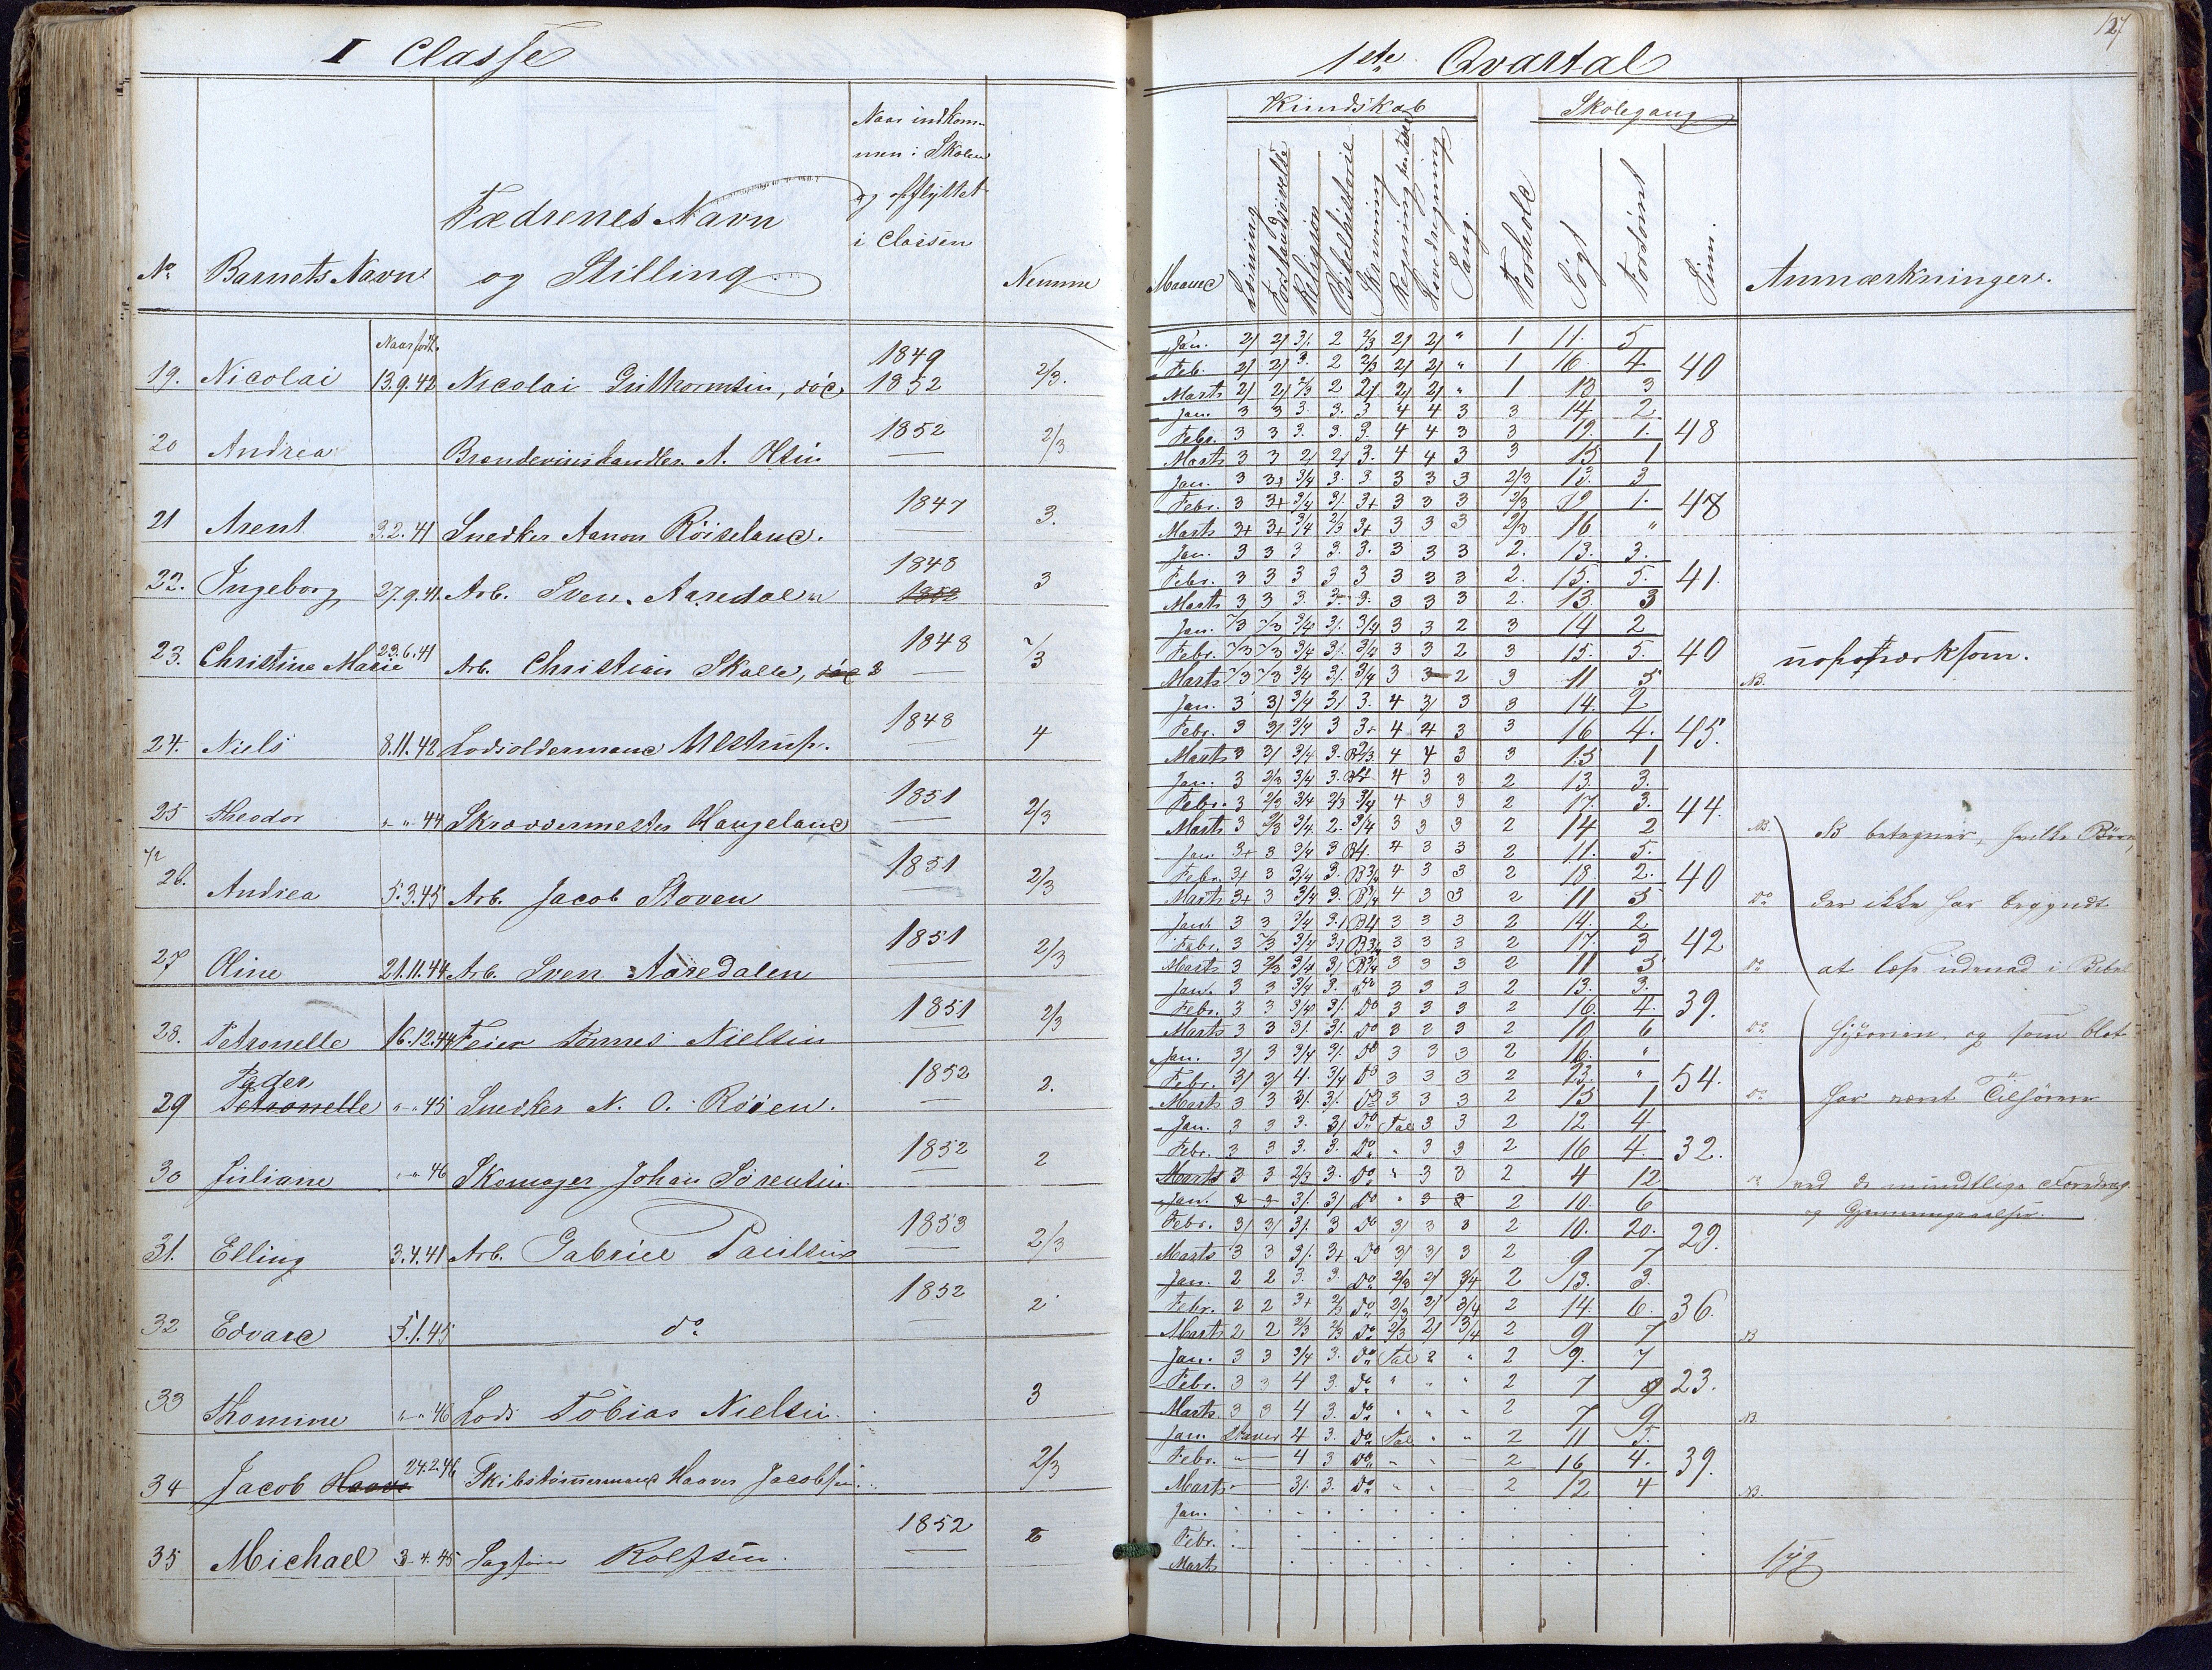 I Classe
1ste Qvartal
127
No
Barnets Navn
Fædrenes Navn
og Stilling
Naar indkom-
men i Skolen
og opflyttet
i Classen
Nemme
Maaned
Kundskab
Læsning
Forstandsøvelse
Religion
Bibelhistorie
Skrivning
Regning paa Tavle
Hovedregning
Sang.
Forhold
Skolegang
Søgt
Forsømt
Sum.
Anmærkninger.
Naar født.
19. Nicolai 13.9.42 Nicolai Guthormsen, død 1849 1852 2/3.
20 Andrea Brændeviinshandler A. Olsen 1852 2/3
21 Arent 3.2.41 Snedker Aanon Röiseland. 1847 3.
22. Ingeborg 27.9.41. Arb. Sven Aaredalen 1848 1852 3
23. Christine Marie 23.6.41 Arb. Christian Skalle, død 1848
24. Niels 8.11.42 Lodsoldermand Ulstrup. 1848 4
25 Theodor " " 44 Skræddermester Haugeland 1851 2/3
26. Andrea 5.3.45 Arb. Jacob Stoven 1851 2/3
27 Oline 21.11.44 Arb. Sven Aaredalen 1851 2/3
28. Petronelle 16.12.44 Feier Tönnes Nielsen 1851 2/3
29 Peder Petronelle " " 45 Snedker N. O. Röien. 1852 2.
30 Juliane " " 46 Skomager Johan Sörensen 1852 2
31. Elling 3.4.41 Arb. Gabriel Paulsen 1853 2/3
32 Edvard 5.1.45 do 1852 2
33 Thomine " " 46 Lods Tobias Nielsen 3
34 Jacob 24.2.46 Skibstömmermand Haaver Jacobsen. 2/3
35 Michael 3.4.45 Sagfører Rolfsen. 1852
Jan. 2/ 2/ 3/. 2 2/3 2/ 2/ " 1 11. 5
Feb. 2/ 2/ 3. 2 2/3 2/ 2/ " 1 16 4 40
Marts 2/ 2/ 2/3 2 2/ 2/ 2/ " 1 13 3
Jan. 3 3 3. 3. 3 4 4 3 3 14 2.
Febr. 3 3 3. 3. 3. 4 4 3 3 19. 1. 48
Marts 3 3 2/ 2/ 3. 4 4 3 3 15 1
Jan. 3 3+ 3/4 3. 3 3 3 3 2/3 13. 3
Febr. 3 3+ 3/4 3/. 3+ 3 3 3 2/3 19 1. 48
Marts 3+ 3+ 3/4 2/3 3+ 3 3 3 2/3 16 "
Jan. 3 3 3 3. 3. 3 3 3 2. 13. 3.
Febr. 3 3 3 3 3 3 3 3 2. 15. 5. 41.
Marts 3 3 3. 3. 3. 3 3 3 2. 13. 3
Jan. 2/3 2/3 3/4 3/. 3/4 3 3 2 3 14 2
Febr. 2/3 2/3 3/4 3/. 3/4 3 3 2 3 15. 5. 40
Marts 2/3 2/3 3/4 3/. 3/4 3 3 2 3 11 5 NB.
Jan. 3 3/ 3/4 3/ 3. 4 3/ 3 3 14. 2
Febr. 3 3/ 3/4 3 3+ 4 4 3 3 16 4. 45.
Marts 3 3/ 3/4 3. 4 4 3 3 15 1
Jan. 3 2/3 3/4 3. 4 3 3 2 13. 3.
Febr. 3 2/3 3/4 2/3 3/4 4 3 3 2 17. 3. 44.
Marts 3 2/3 3/4 2. 3/4 3 3 3 2 14 2 NB.
Jan. 3+ 3 3/4 3 B4. 4 3 3 2 11. 5.
Febr. 3/ 3 3/4 3. B3/4 4 3 3 2 18. 2. 40
Marts 3+ 3 3/4 3. B3/4 4 3 3 2 11 5 Do
Jan. 3 3 3/4 3/ B4 3 3 3 2 14. 2.
Febr. 3 2/3 3/4 3/ B3/4 3 3 3 2 17. 3 42
Marts 3 2/3 3/4 3/ B3/4 3 3 3 2 11 5 Do
Jan. 3 3 3/4 3. Do 3 3 3 2 13. 3.
Febr. 3 3 3/4 3/. Do 3 3 3 2 16. 4. 39.
Marts 3 3 3/. 3/. Do 3 3 3 2 10 6 Do
Jan. 3/ 3 3/4 3/. Do 3 3 3 2 16. "
Febr. 3/ 3/ 4. 3/4 Do 3 3 3 2 23. " 54.
Marts 3 3 3/. 3/. Do 3 3 3 2 15 1 Do
Jan. 3 3 3. 3/ Do Tal 3 3 2 12 4
Febr. 3 3 3. 3. Do " 3 3 2 16 4. 32.
Marts 3 3 2/3 3. Do " 3 3 2 4 12
Jan. 3 3 3/. 3/ Do " 3 3 2 10. 6
Febr. 3/ 3/ 3/. 3 Do 3/ 3 3 2 10. 20. 29.
Marts 3 3 3/. 3+ Do 3/ 3/ 3 2 9 7
Jan. 2 2 3. 3. Do 2/3 2/ 3/4 2 13. 3.
Febr. 2 2 3+ 2/3 Do 2/3 2/ 3/4 2 14. 6. 36.
Marts 2 2 2/3 2/3 Do 2/3 2/ 3/4 2 9 7 NB
Jan. 3 3 3/4 3. Do Tal " " 2 9. 7
Febr. 3 3 4 3. Do " " " 2 7 9 23.
Marts 3 3 4 3. Do " " " 2 7 9 NB.
Jan. Staver 4 3. Do Tal " " 2 11 5.
Febr. " 4 3 Do " " 2 16 4. 39.
Marts " 3/. 3. Do " " 2 12 4 NB.
Jan.
Febr.
Marts
NB betegner, hvilke Börn,
der ikke har begyndt
at læse udenad i Bibel
historien, og som blot
har været Tilhörere
ved de mundtlige Foredrag
og
syg